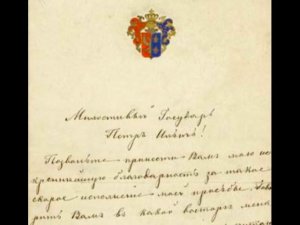 Милостивый Государь
Петръ Ильичъ!
Позвольте принести Вамъ мою ис
креннѣйшую благодарность за такое
скорое исполненіе моей просьбы. Гово
рить Вамъ въ какой восторгъ меня